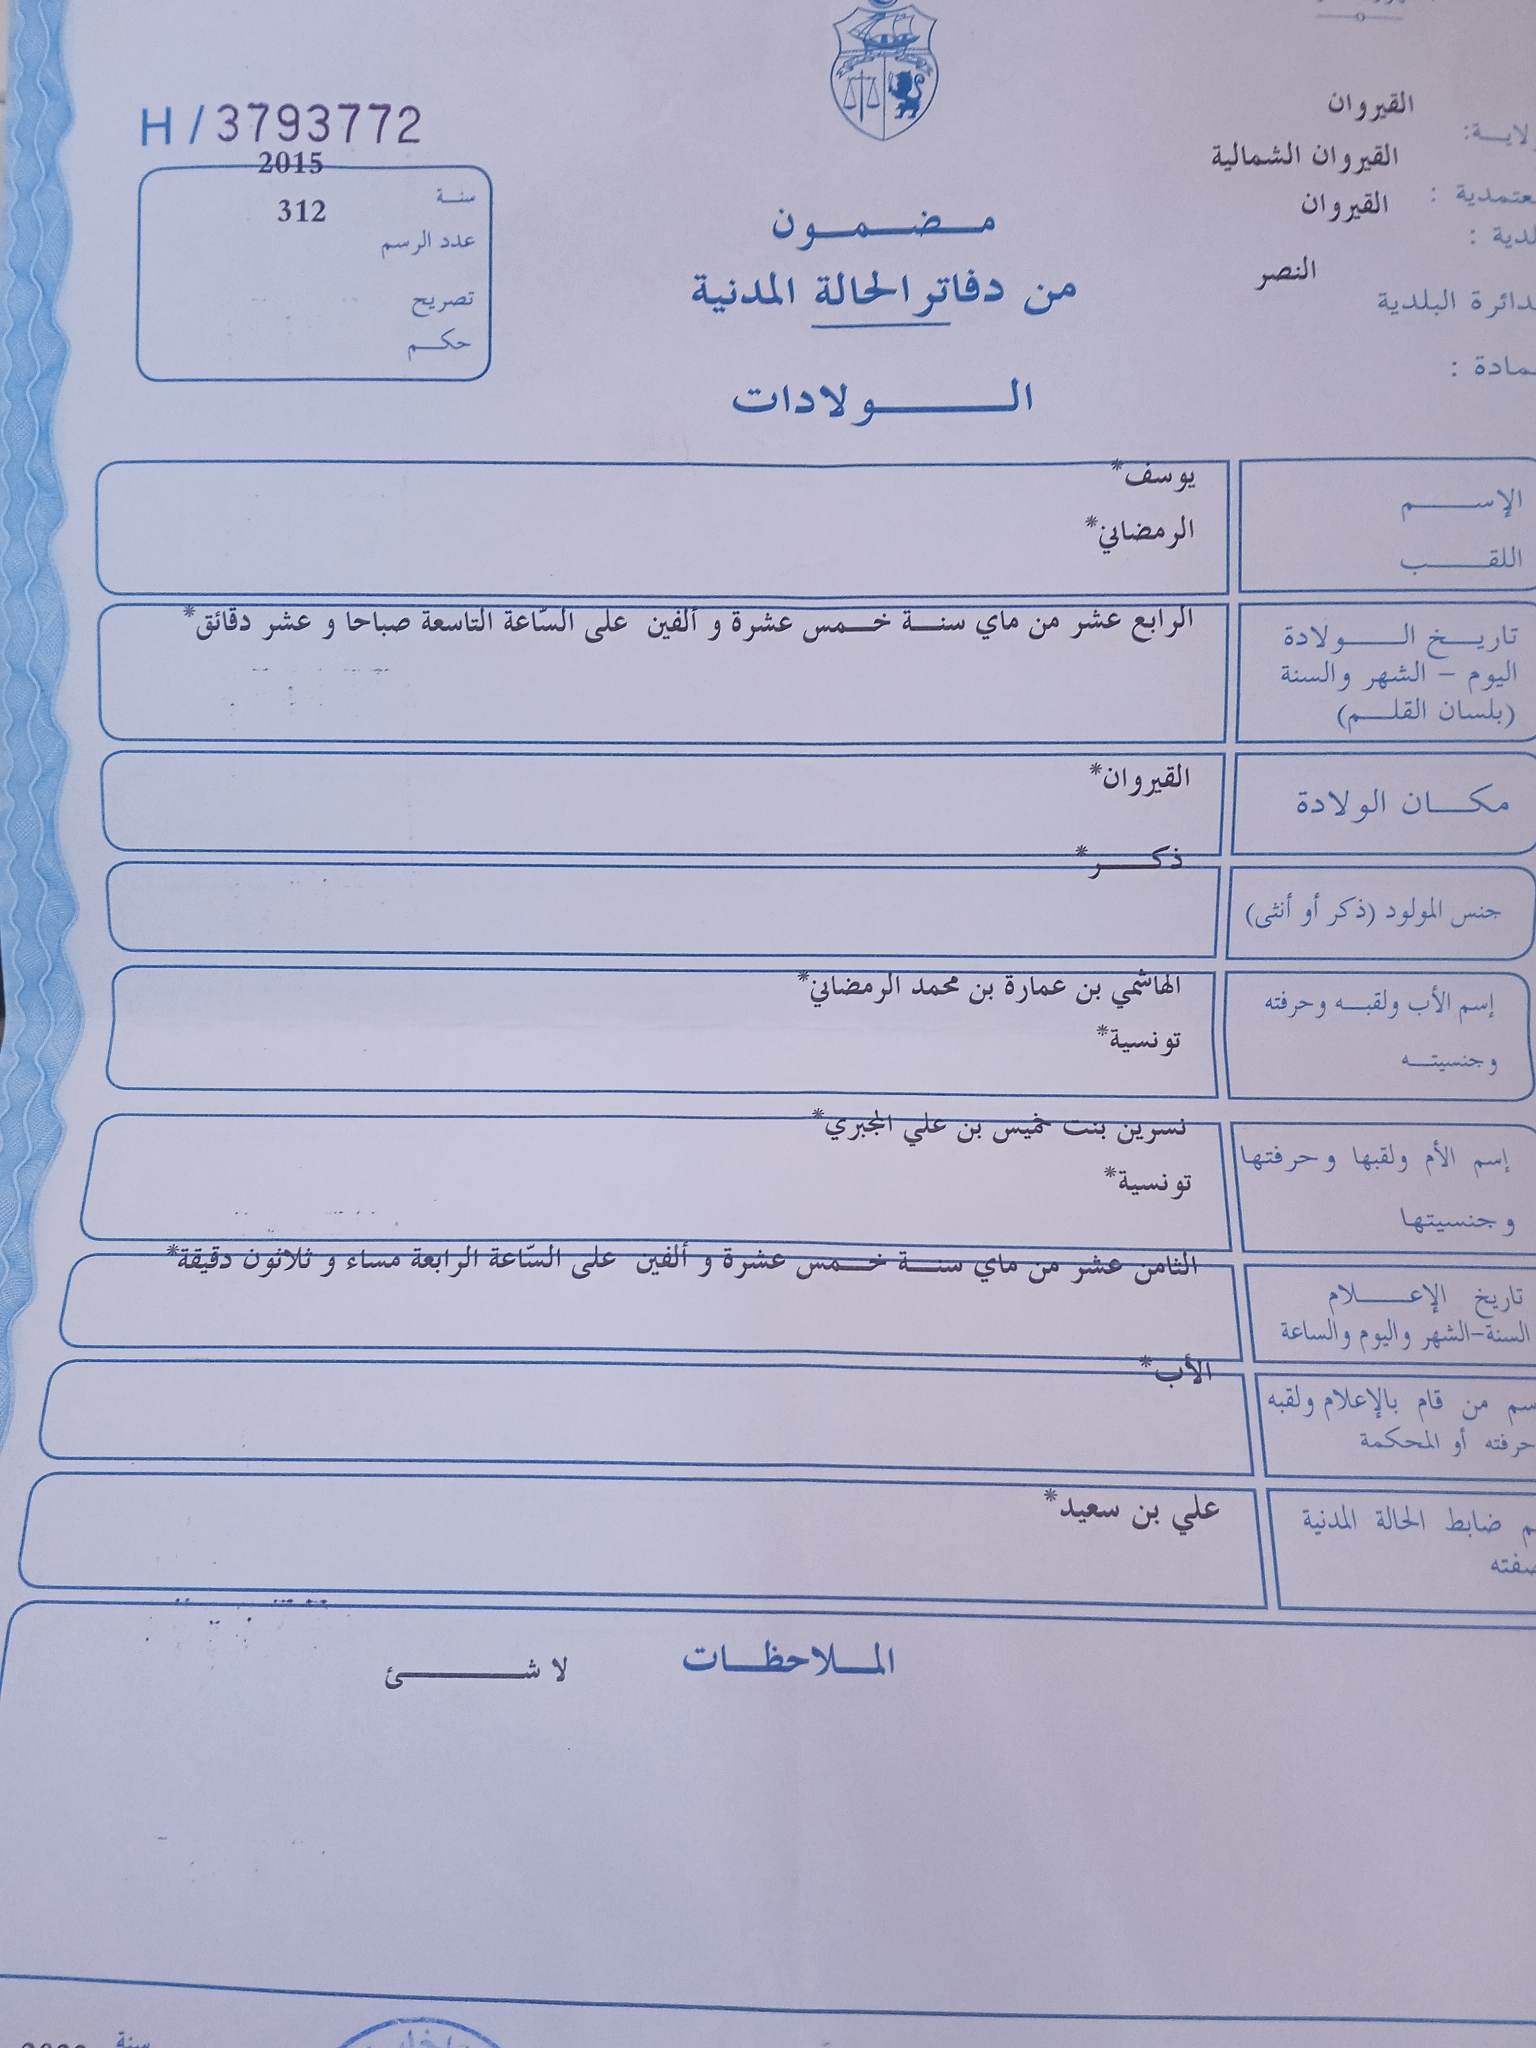 القيروان
ولاية:
القيروان الشمالية
معتمدية :
القيروان
بلدية :
النصر
الدائرة البلدية
عمادة :
H / 3793772
سنة 2015
عدد الرسم 312
تصريح
حكم
مضمون
من دفاتر الحالة المدنية
الولادات
الإسم يوسف*
اللقب الرمضاني*
تاريخ الولادة الرابع عشر من ماي سنة خمس عشرة و ألفين على السّاعة التاسعة صباحا و عشر دقائق*
اليوم - الشهر والسنة
(بلسان القلم)
مكان الولادة القيروان*
جنس المولود (ذكر أو أنثى) ذكر*
إسم الأب ولقبه وحرفته الهاشمي بن عمارة بن محمد الرمضاني*
وجنسيته تونسية*
إسم الأم ولقبها وحرفتها نسرين بنت خميس بن علي الجبري*
وجنسيتها تونسية*
تاريخ الإعلام الثامن عشر من ماي سنة خمس عشرة و ألفين على السّاعة الرابعة مساء و ثلاثون دقيقة*
السنة-الشهر واليوم والساعة
إسم من قام بالإعلام ولقبه الأب*
حرفته أو المحكمة
ضابط الحالة المدنية علي بن سعيد*
صفته
الملاحظات
لا شئ
سنة